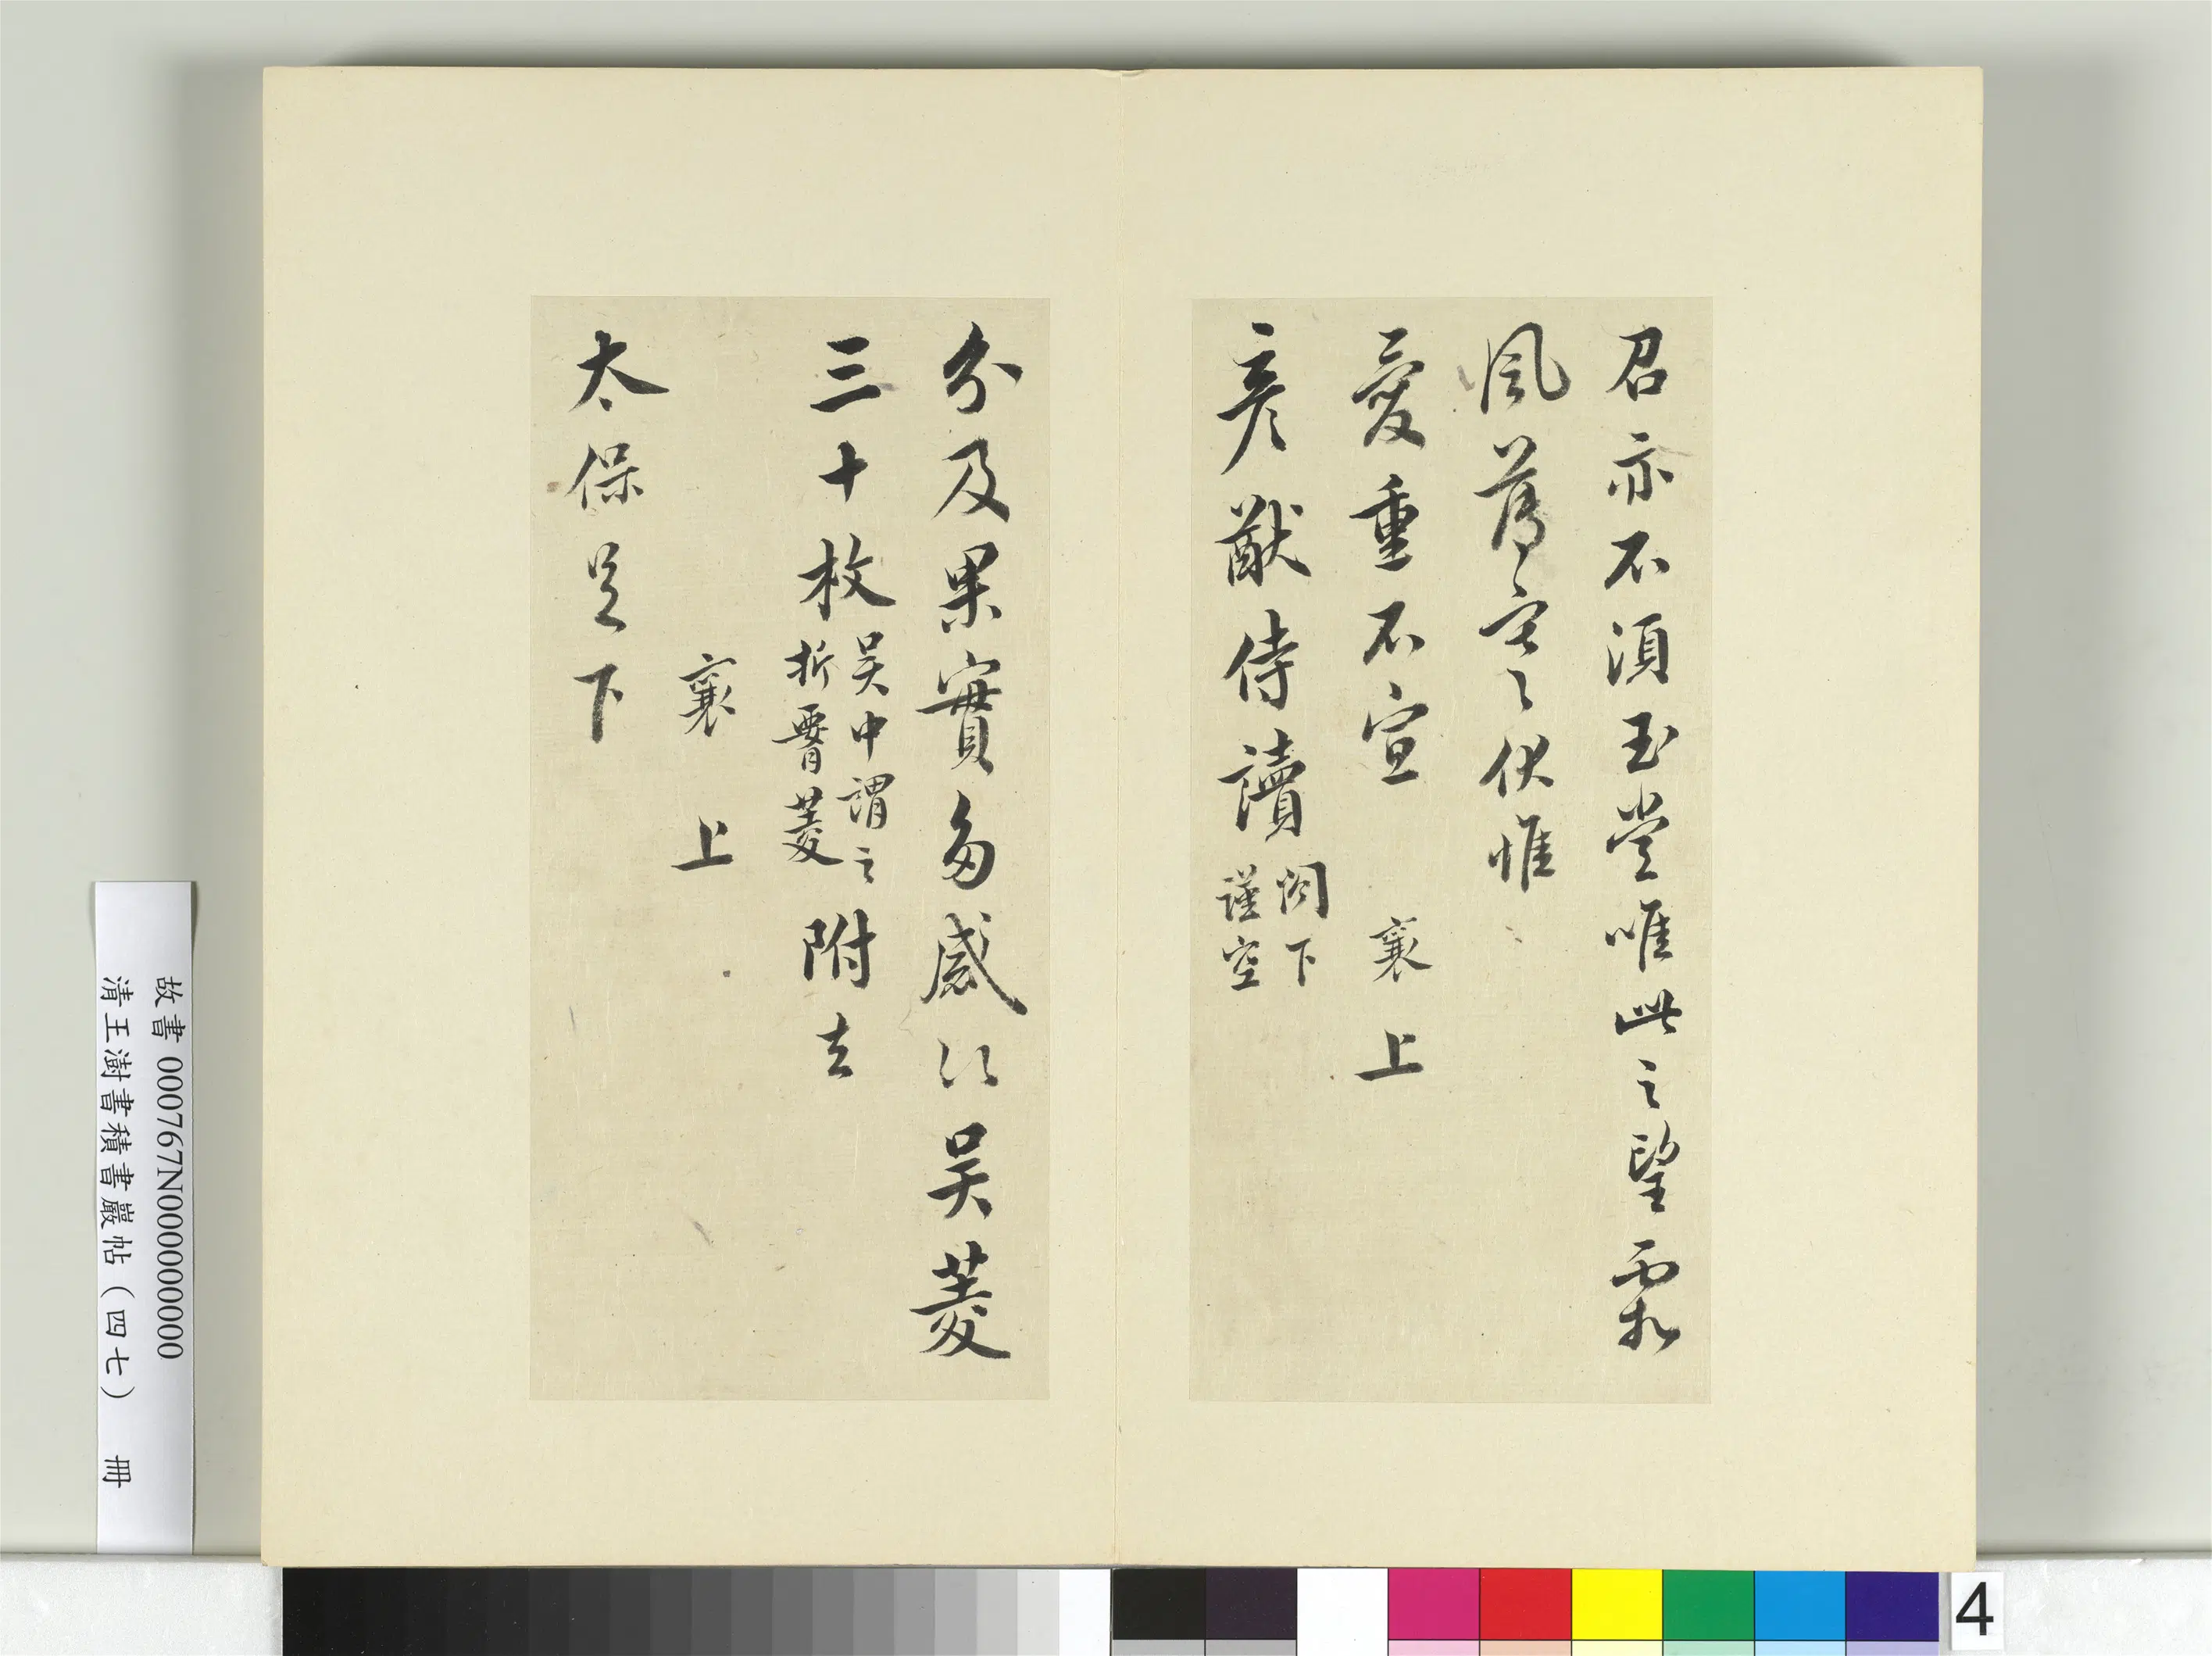 召亦不須玉堂唯此之望霜
風薄寒之伏惟
愛重不宣　襄上
彥猷侍讀閣下謹空
分及果實多感江吳菱
三十枚吳中謂之折腰菱附去
襄上
太保足下
故書 000767N000000000
清王澍書積書巖帖（四七）　冊
4